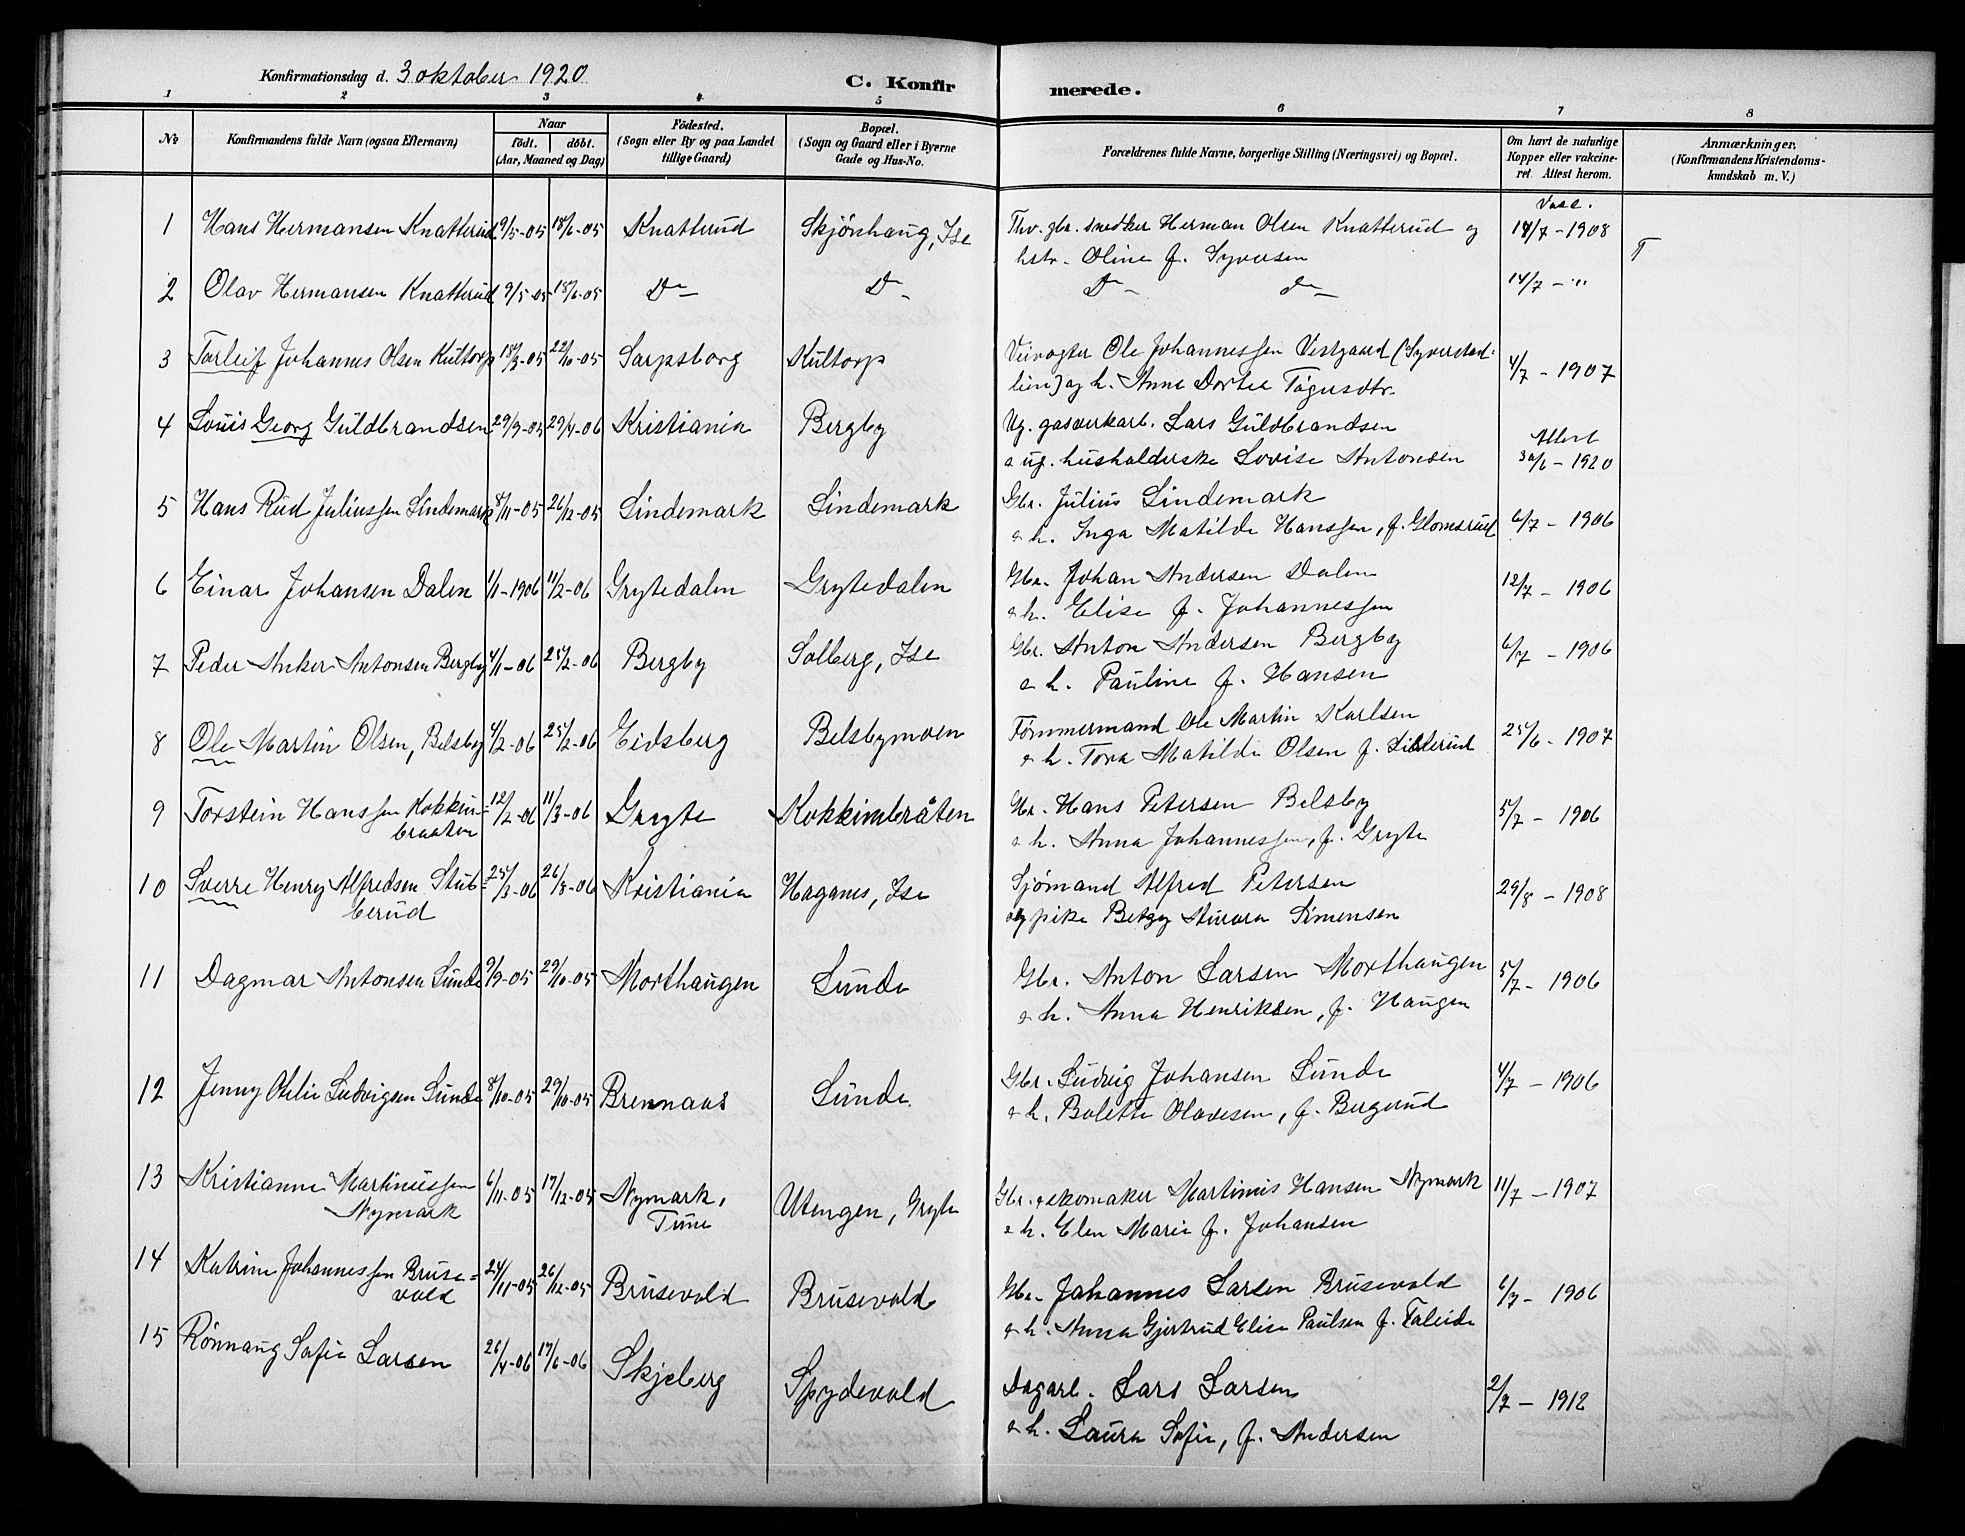 Konfirmationsdag d. 3 oktober 1920
C. Konfirmerede.
1 2 3 4 5 6 7 8
№ Konfirmandens fulde Navn (ogsaa Efternavn) Naar født. døbt. (Aar, Maaned og Dag) Fødested. (Sogn eller By og paa Landet tillige Gaard) Bopæl. (Sogn og Gaard eller i Byerne Gade og Hus-No. Forældrenes fulde Navne, borgerlige Stilling (Næringsvei) og Bopæl. Om havt de naturlige Kopper eller vakcineret. Attest herom. Anmærkninger. (Konfirmandens Kristendomskundskab m. V.)
1 Hans Hermansen Knatterud 9/5-05 18/6-05 Knatterud Skjønhaug, Ise Thv. gbr. snedker Herman Olsen Knatterud og Vacc. 14/7-1908
hstr. Oline f. Syversen T
2 Olav Hermansen Knatterud 9/5-05 18/6-05 Do Do Do do 14/7 - "
3 Torleif Johannes Olsen Kultorp 22/10-05 Sarpsborg Kultorp Veivogter Ole Johannessen Vestgaard (Syverstad-
lien) og h. Anna Dortea 4/7 - 1907
4 Louis Georg Guldbrandsen 29/9-05 29/4-06 Kristiania Bergby Ug. gasverkarb. Lars Guldbrandsen
& ug. husholderske Lovise Antonsen Attest 30/6-1920
5 Hans Rud Juliussen Lindemark 8/11-05 26/12-05 Lindemark Lindemark Gbr. Julius Lindemark
& h. Inga Matilde Hanssen, f. Glomsrud 6/7 - 1906
6 Einar Johansen Dalen 1/1-1906 11/2-06 Grytedalen Grytedalen Gbr. Johan Andersen Dalen 12/7 - 1906
& h. Elise f. Johannessen
7 Peder Anker Antonsen Bergby 4/1-06 25/2-06 Bergby Solberg, Ise Gbr. Anton Andersen Bergby 6/7 - 1906
& h. Pauline f. Hansen
8 Ole Martin Olsen, Belsby 4/2-06 25/2-06 Eidsberg Belsbymoen Tømmermand Ole Martin Karlsen 25/6 - 1907
& h. Tora Matilde Olsen f.
9 Torstein Hanssen Kokkim- 12/2-06 11/3-06 Gryte Kokkimbråten Gbr. Hans Petersen Belsby 5/7 - 1906
braaten & h. Anna Johannessen, f. Gryte
10 Sverre Henry Alfredsen Stub- 25/3-06 26/8-06 Kristiania Haganes, Ise Sjømand Alfred Petersen 29/8 - 1908
berud og pike Betzy Aurora Simensen
11 Dagmar Antonsen Sunde 9/9-05 29/10-05 Morthaugen Sunde Gbr. Anton Larsen Morthaugen 5/7 - 1906
& h. Anna Henriksen, f. Haugen
12 Jenny Otelie Ludvigsen Sunde 8/10-05 29/10-05 Brennaas Sunde Gbr. Ludvig Johansen Sunde 4/7 - 1906
& h. Bolette Olavesen, f. Bergerud
13 Kristianne Martinussen 6/11-05 17/12-05 Nymark, Utengen, Gryte Gbr. & skomaker Martinius Hansen Nymark 11/7 - 1907
Nymark Tune & h. Elen Marie f. Johansen
14 Katrine Johannessen Bruse- 24/11-05 26/12-05 Brusevold Brusevold Gbr. Johannes Larsen Brusevold 6/7 - 1906
vold & h. Anna Gjertrud Elise Paulsen f. Faleide
15 Rönnaug Sofie Larsen 26/4-06 17/6-06 Skjeberg Spydevold Dagarb. Lars Larsen 2/7 - 1912
& h. Laura Sofie, f. Andersen